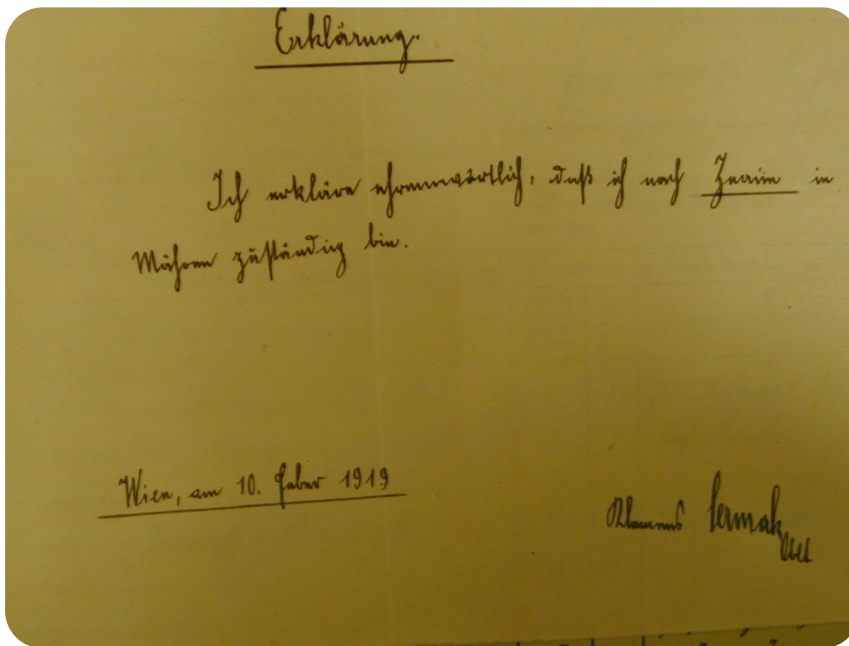 Erklärung.
Ich erkläre ehrenwörtlich, daß ich nach Znaim in
Mähren zuständig bin.
Wien, am 10. Feber 1919
Klemens Cermak